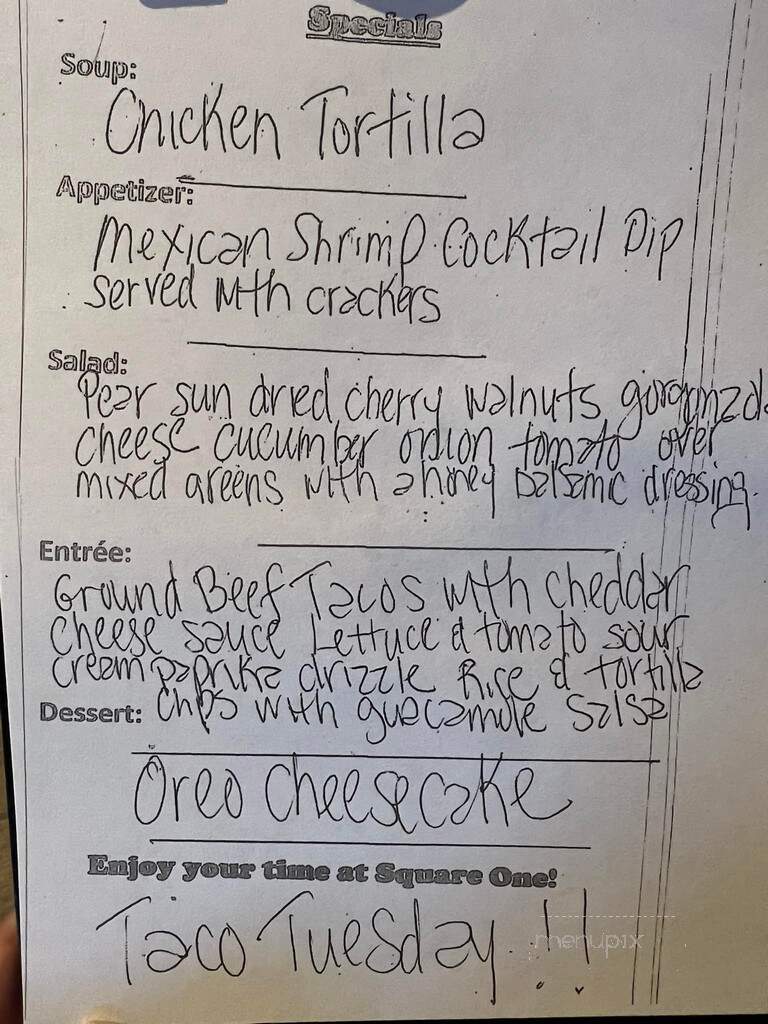 Specials
Soup:
Chicken Tortilla
Appetizer:
Mexican Shrimp Cocktail Dip
served with crackers
Salad:
Pear sun dried cherry walnuts gorgonzola
cheese cucumber onion tomato over
mixed greens with a honey balsamic dressing.
Entrée:
Ground Beef Tacos with cheddar
cheese sauce Lettuce & tomato sour
cream paprika drizzle Rice & tortilla
Dessert: chips with guacamole salsa
Oreo cheesecake
Enjoy your time at Square One!
Taco Tuesday !!
menupix